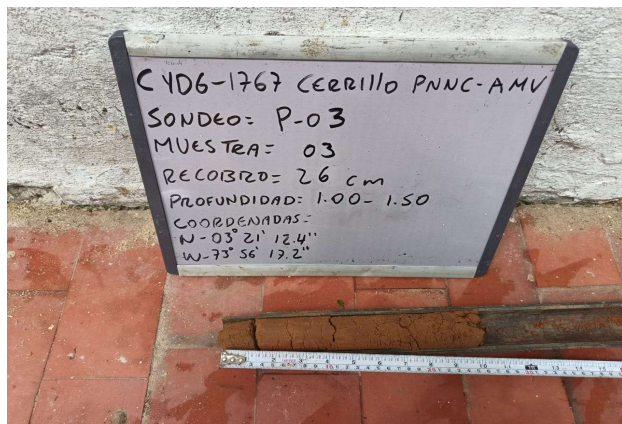 CYDG-1767 CERRILLO PNNC-AMV
SONDEO: P-03
MUESTRA: 03
RECOBRO: 26 cm
PROFUNDIDAD: 1.00-1.50
COORDENADAS:
N-03° 21' 12.4"
W-73° 56' 17.2"